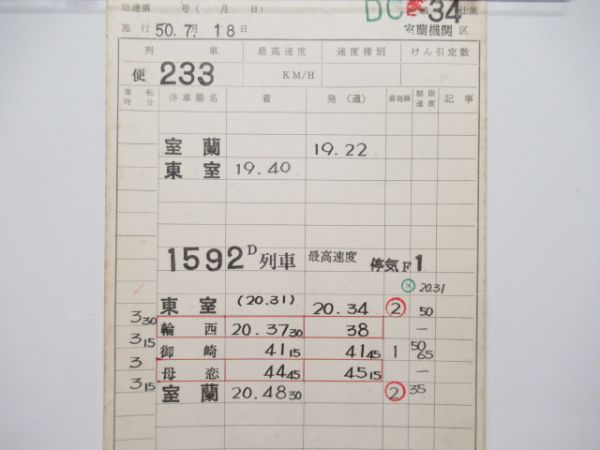 局達第 号( 月 日)
DC 34 仕業
施行 50.7.18日 室蘭機関区
列車 最高速度 速度種別 けん引定数
便 233 KM/H
運転時分 停車場名 着 発(通) 着発線 制限速度 記事
室蘭 19.22
東室 19.40
1592D列車 最高速度 停気F1
× 20.31
東室 (20.31) 20.34 2 50
3 30
輪西 20.37 30 38 —
3 15
御崎 41 15 41 45 1 50 65
3
母恋 44 45 45 15 —
3 15
室蘭 20.48 30 2 35